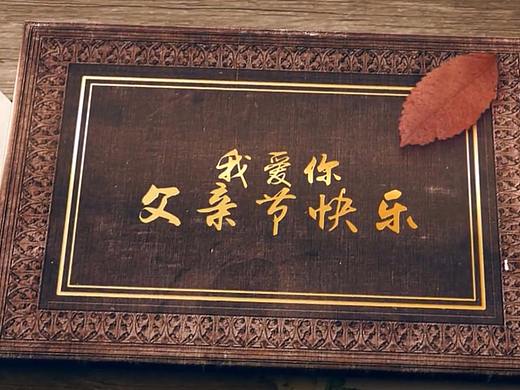 我爱你
父亲节快乐